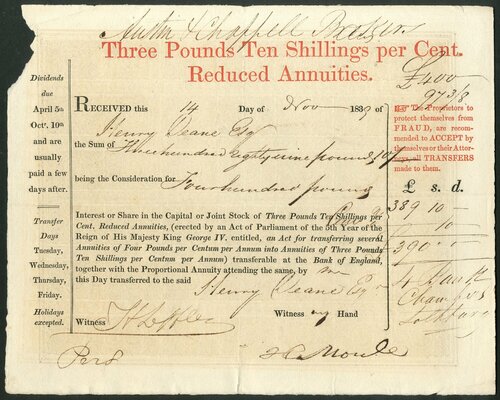 Austin & Chappell Brokers
Three Pounds Ten Shillings per Cent.
Reduced Annuities.
£400
97 3/8
Dividends
due
April 5th
Octr. 10th
and are
usually
paid a few
days after.
Transfer
Days
Tuesday,
Wednesday,
Thursday,
Friday.
Holidays
excepted.
RECEIVED this 14 Day of Nov 1839 of
Henry Deane Esqr
the Sum of Three hundred Eighty nine pounds 10/
being the Consideration for Four hundred pounds
Interest or Share in the Capital or Joint Stock of Three Pounds Ten Shillings per
Cent. Reduced Annuities, (erected by an Act of Parliament of the 5th Year of the
Reign of His Majesty King George IV. entitled, an Act for transferring several
Annuities of Four Pounds per Centum per Annum into Annuities of Three Pounds
Ten Shillings per Centum per Annum) transferable at the Bank of England,
together with the Proportional Annuity attending the same, by me
this Day transferred to the said Henry Deane Esqr
Witness my Hand
Witness
☞ The Proprietors to
protect themselves from
FRAUD, are recom-
mended to ACCEPT by
themselves or their Attor-
neys, all TRANSFERS
made to them.
£ s. d.
389 10 -
10
390 - -
Lothbury